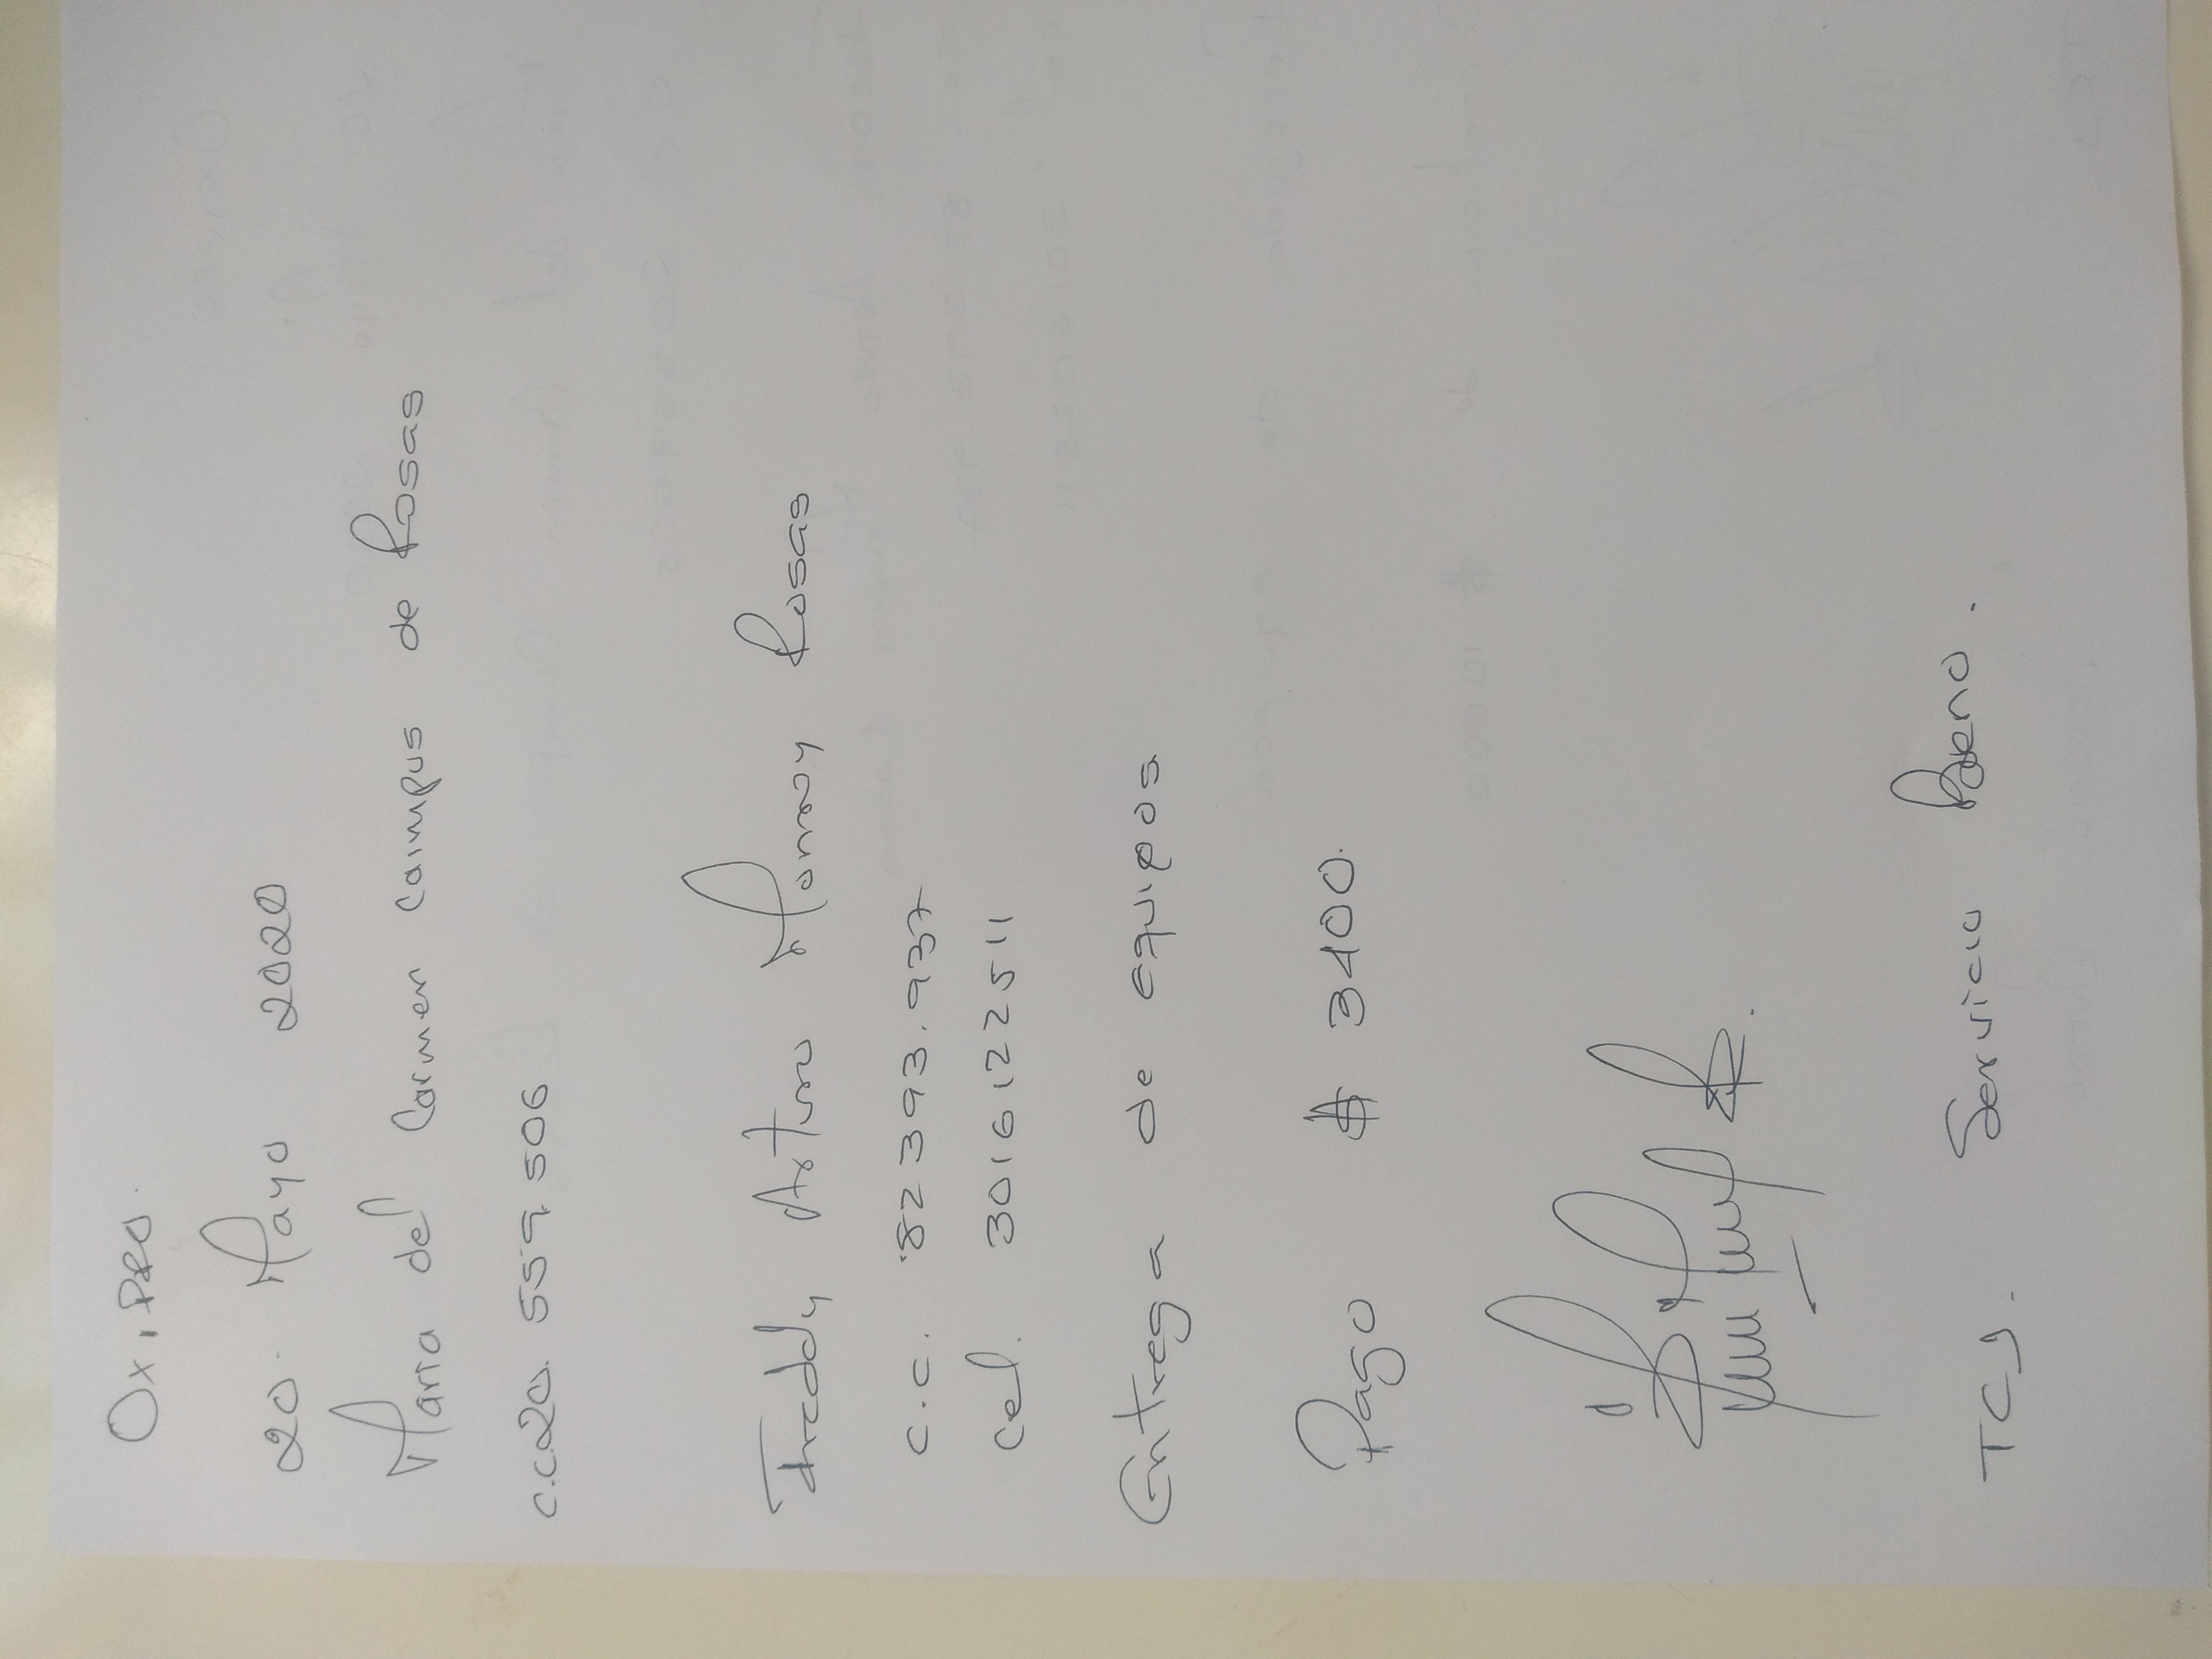 Oxipro.
20. Mayo 2020
Maria del Carmen Campus de Rosas
c.c 20. 559.506
Freddy Arturo Monroy Rosas
c.c. 82393.937
Cel. 3016122511
Entrega de equipos
Pago $ 3400.
TCg. Servicio Bueno.